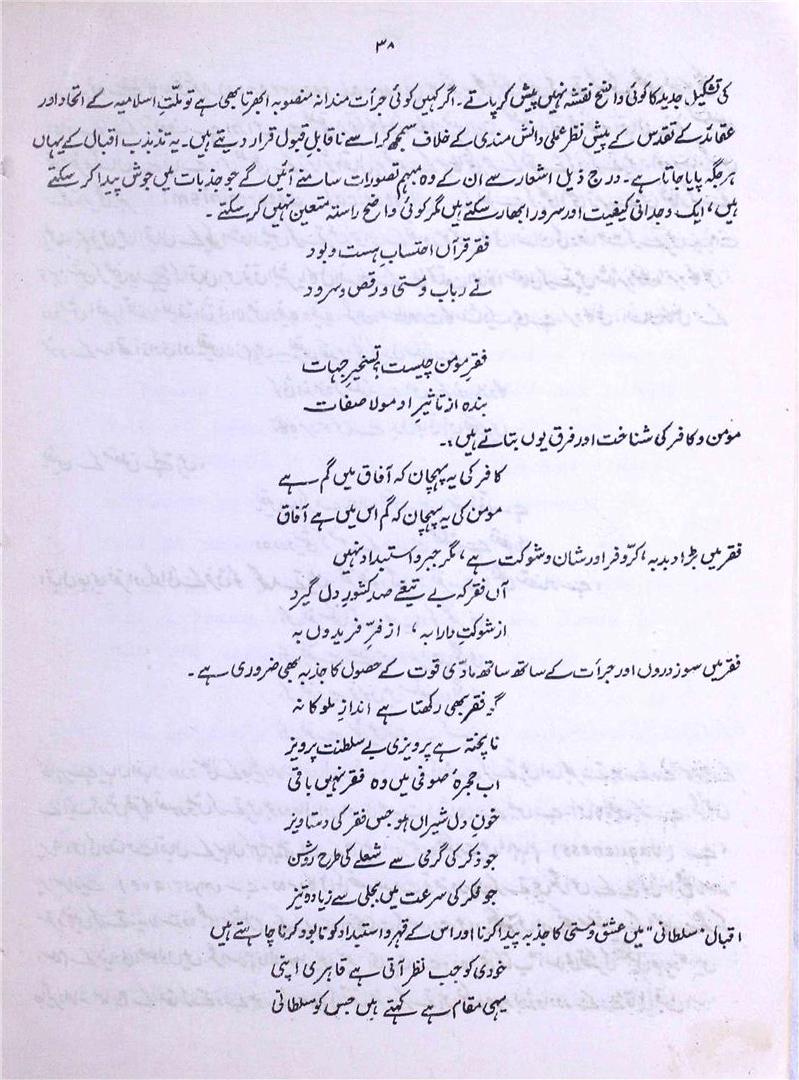 ۳۸
کی تشکیل جدید کا کوئی واضح نقشہ نہیں پیش کر پاتے۔ اگر کہیں کوئی جرأت مندانہ منصوبہ ابھرتا بھی ہے تو ملّتِ اسلامیہ کے اتحاد اور
عقائد کے تقدس کے پیش نظر عملی دانش مندی کے خلاف سمجھ کر اسے ناقابل قبول قرار دیتے ہیں۔ یہ تذبذب اقبال کے یہاں
ہر جگہ پایا جاتا ہے۔ درج ذیل اشعار سے ان کے وہ مبہم تصورات سامنے آئیں گے جو جذبات میں جوش پیدا کر سکتے
ہیں، ایک وجدانی کیفیت اور سرور ابھار سکتے ہیں مگر کوئی واضح راستہ متعین نہیں کر سکتے۔
فقر قرآں احتساب ہست و بود
نے رباب و مستی و رقص و سرود
فقر مومن چیست؟ تسخیر جہات
بندہ از تاثیر او مولا صفات
مومن و کافر کی شناخت اور فرق یوں بتاتے ہیں:۔
کافر کی یہ پہچان کہ آفاق میں گم ہے
مومن کی یہ پہچان کہ گم اس میں ہے آفاق
فقر میں بڑا دبدبہ، کرّ و فر اور شان و شوکت ہے، مگر جبر و استبداد نہیں
آں فقر کہ بے تیغے صد کشورِ دل گیرد
از شوکت دارا بہ، از فرِّ فریدوں بہ
فقر میں سوز دروں اور جرأت کے ساتھ ساتھ مادّی قوت کے حصول کا جذبہ بھی ضروری ہے۔
گو فقر بھی رکھتا ہے اندازِ ملوکانہ
ناپختہ ہے پرویزی بے سلطنت پرویز
اب حجرۂ صوفی میں وہ فقر نہیں باقی
خونِ دل شیراں ہو جس فقر کی دستاویز
جو ذکر کی گرمی سے شعلے کی طرح روشن
جو فکر کی سرعت میں بجلی سے زیادہ تیز
اقبال "سلطانی" میں عشق و مستی کا جذبہ پیدا کرنا اور اس کے قہر و استبداد کو نابود کرنا چاہتے ہیں
خودی کو جب نظر آتی ہے قاہری اپنی
یہی مقام ہے کہتے ہیں جس کو سلطانی